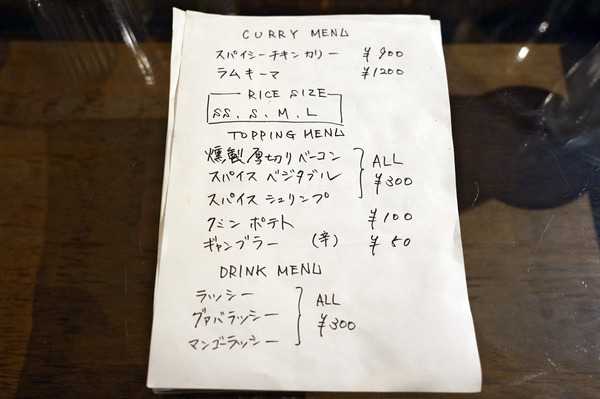 CURRY MENU
スパイシーチキンカリー ¥900
ラムキーマ ¥1200
RICE SIZE
SS. S. M. L
TOPPING MENU
燻製厚切りベーコン
スパイスベジタブル
スパイスシュリンプ
ALL
¥300
クミンポテト ¥100
ギャンブラー (辛) ¥50
DRINK MENU
ラッシー
グァバラッシー
マンゴーラッシー
ALL
¥300